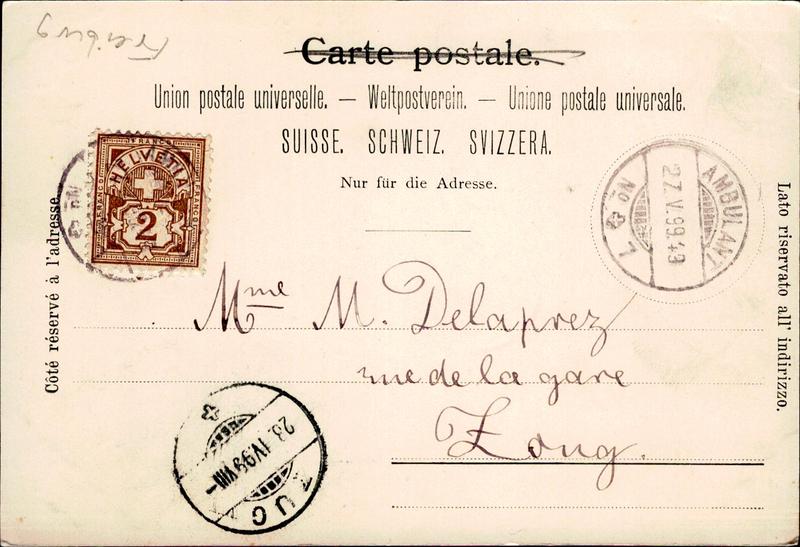 Freiburg
Carte postale.
Union postale universelle. — Weltpostverein. — Unione postale universale.
SUISSE. SCHWEIZ. SVIZZERA.
Nur für die Adresse.
Côté réservé à l'adresse.
Lato riservato all' indirizzo.
FRANCO
HELVETIA
2
AMBULANT
No 7
27.V.99.
Mme M. Delaprez
rue de la gare
Zoug.
ZUG
28.IV.99.VIII-